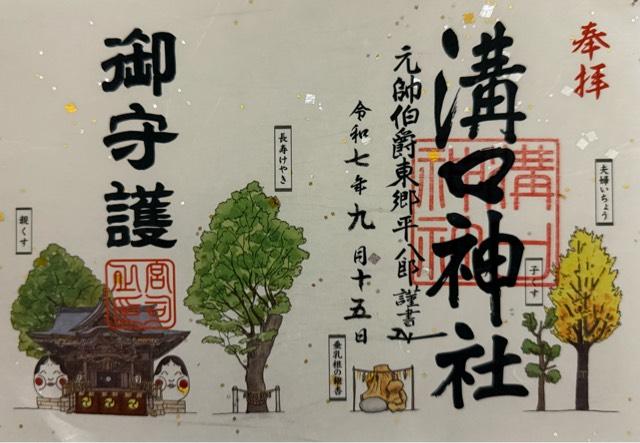 奉拝
溝口神社
溝口
神社
元帥伯爵東郷平八郎謹書
令和七年九月十五日
御守護
宮司
之印
夫婦いちょう
子くす
長寿けやき
親くす